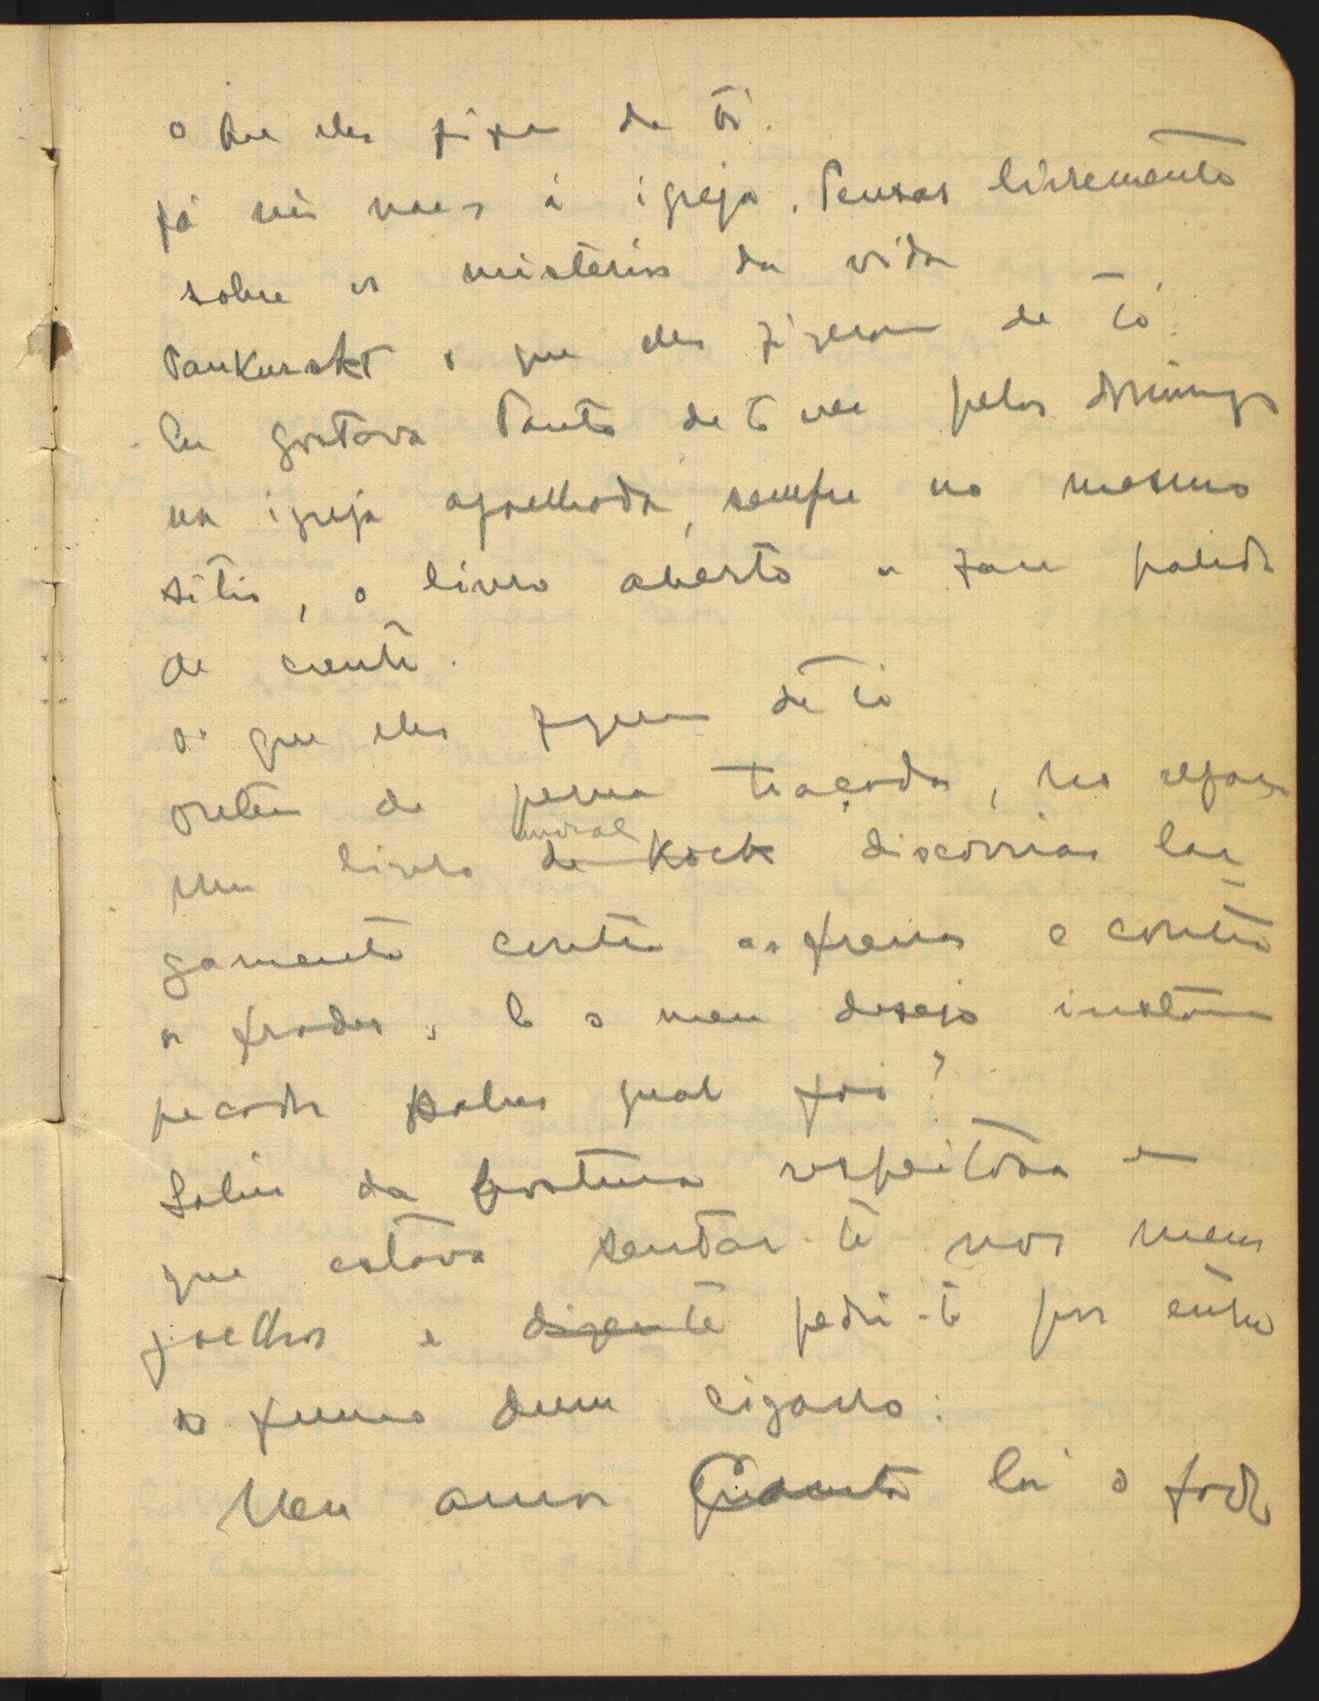 o que eles fizeram de ti.
já não vaes á igreja. Pensas livremente
sobre os misterios da vida
Pankurskt o que eles fizeram de ti
Eu gostava tanto de te ver pelos domingos
na igreja ajoelhada, sempre no mesmo
sitio, o livro aberto a face palida
de crente.
o que eles fizeram de ti
ontem de perna traçada, no regaço
um livro de Kock discorrias lar
moral
gamente contra as freiras e contra
os frades. E o meu desejo instan
pecador sabes qual foi?
Sahir da postura respeitosa em
que estava sentar-te nos meus
joelhos e dizente pedir-te por entre
o fumo dum cigarro:
Meu amor